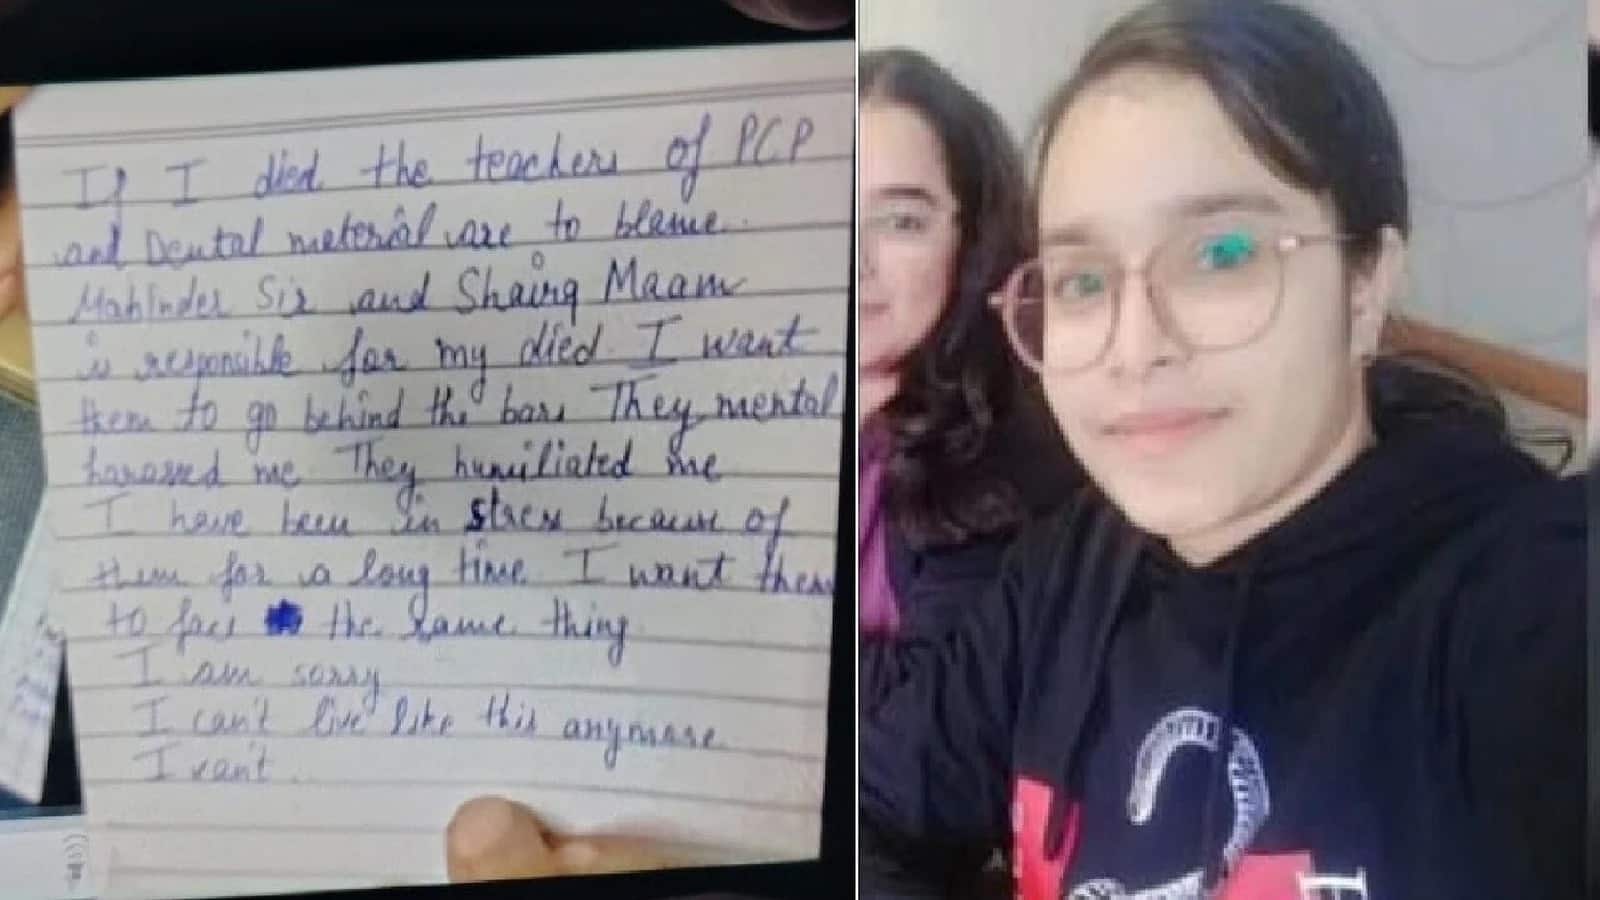 If I died the teachers of PCP
and Dental meterial are to blame.
Mahinder Sir and Shairg Maam
is responsible for my died. I want
them to go behind the bars They mental
harassed me. They humiliated me
I have been in stress because of
them for a long time. I want them
to face the same thing
I am sorry
I can't live like this anymore.
I can't.
2